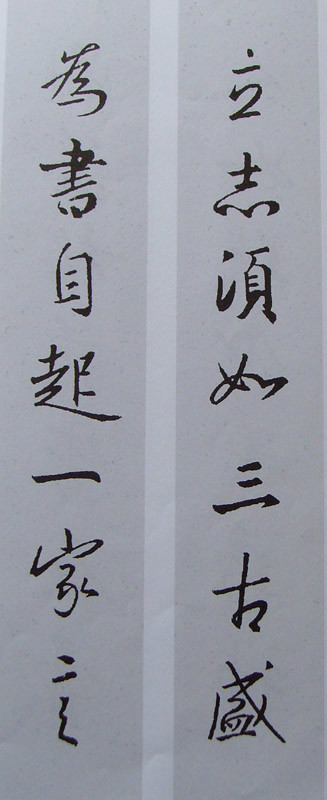 立志須如三古盛
為書自起一家言